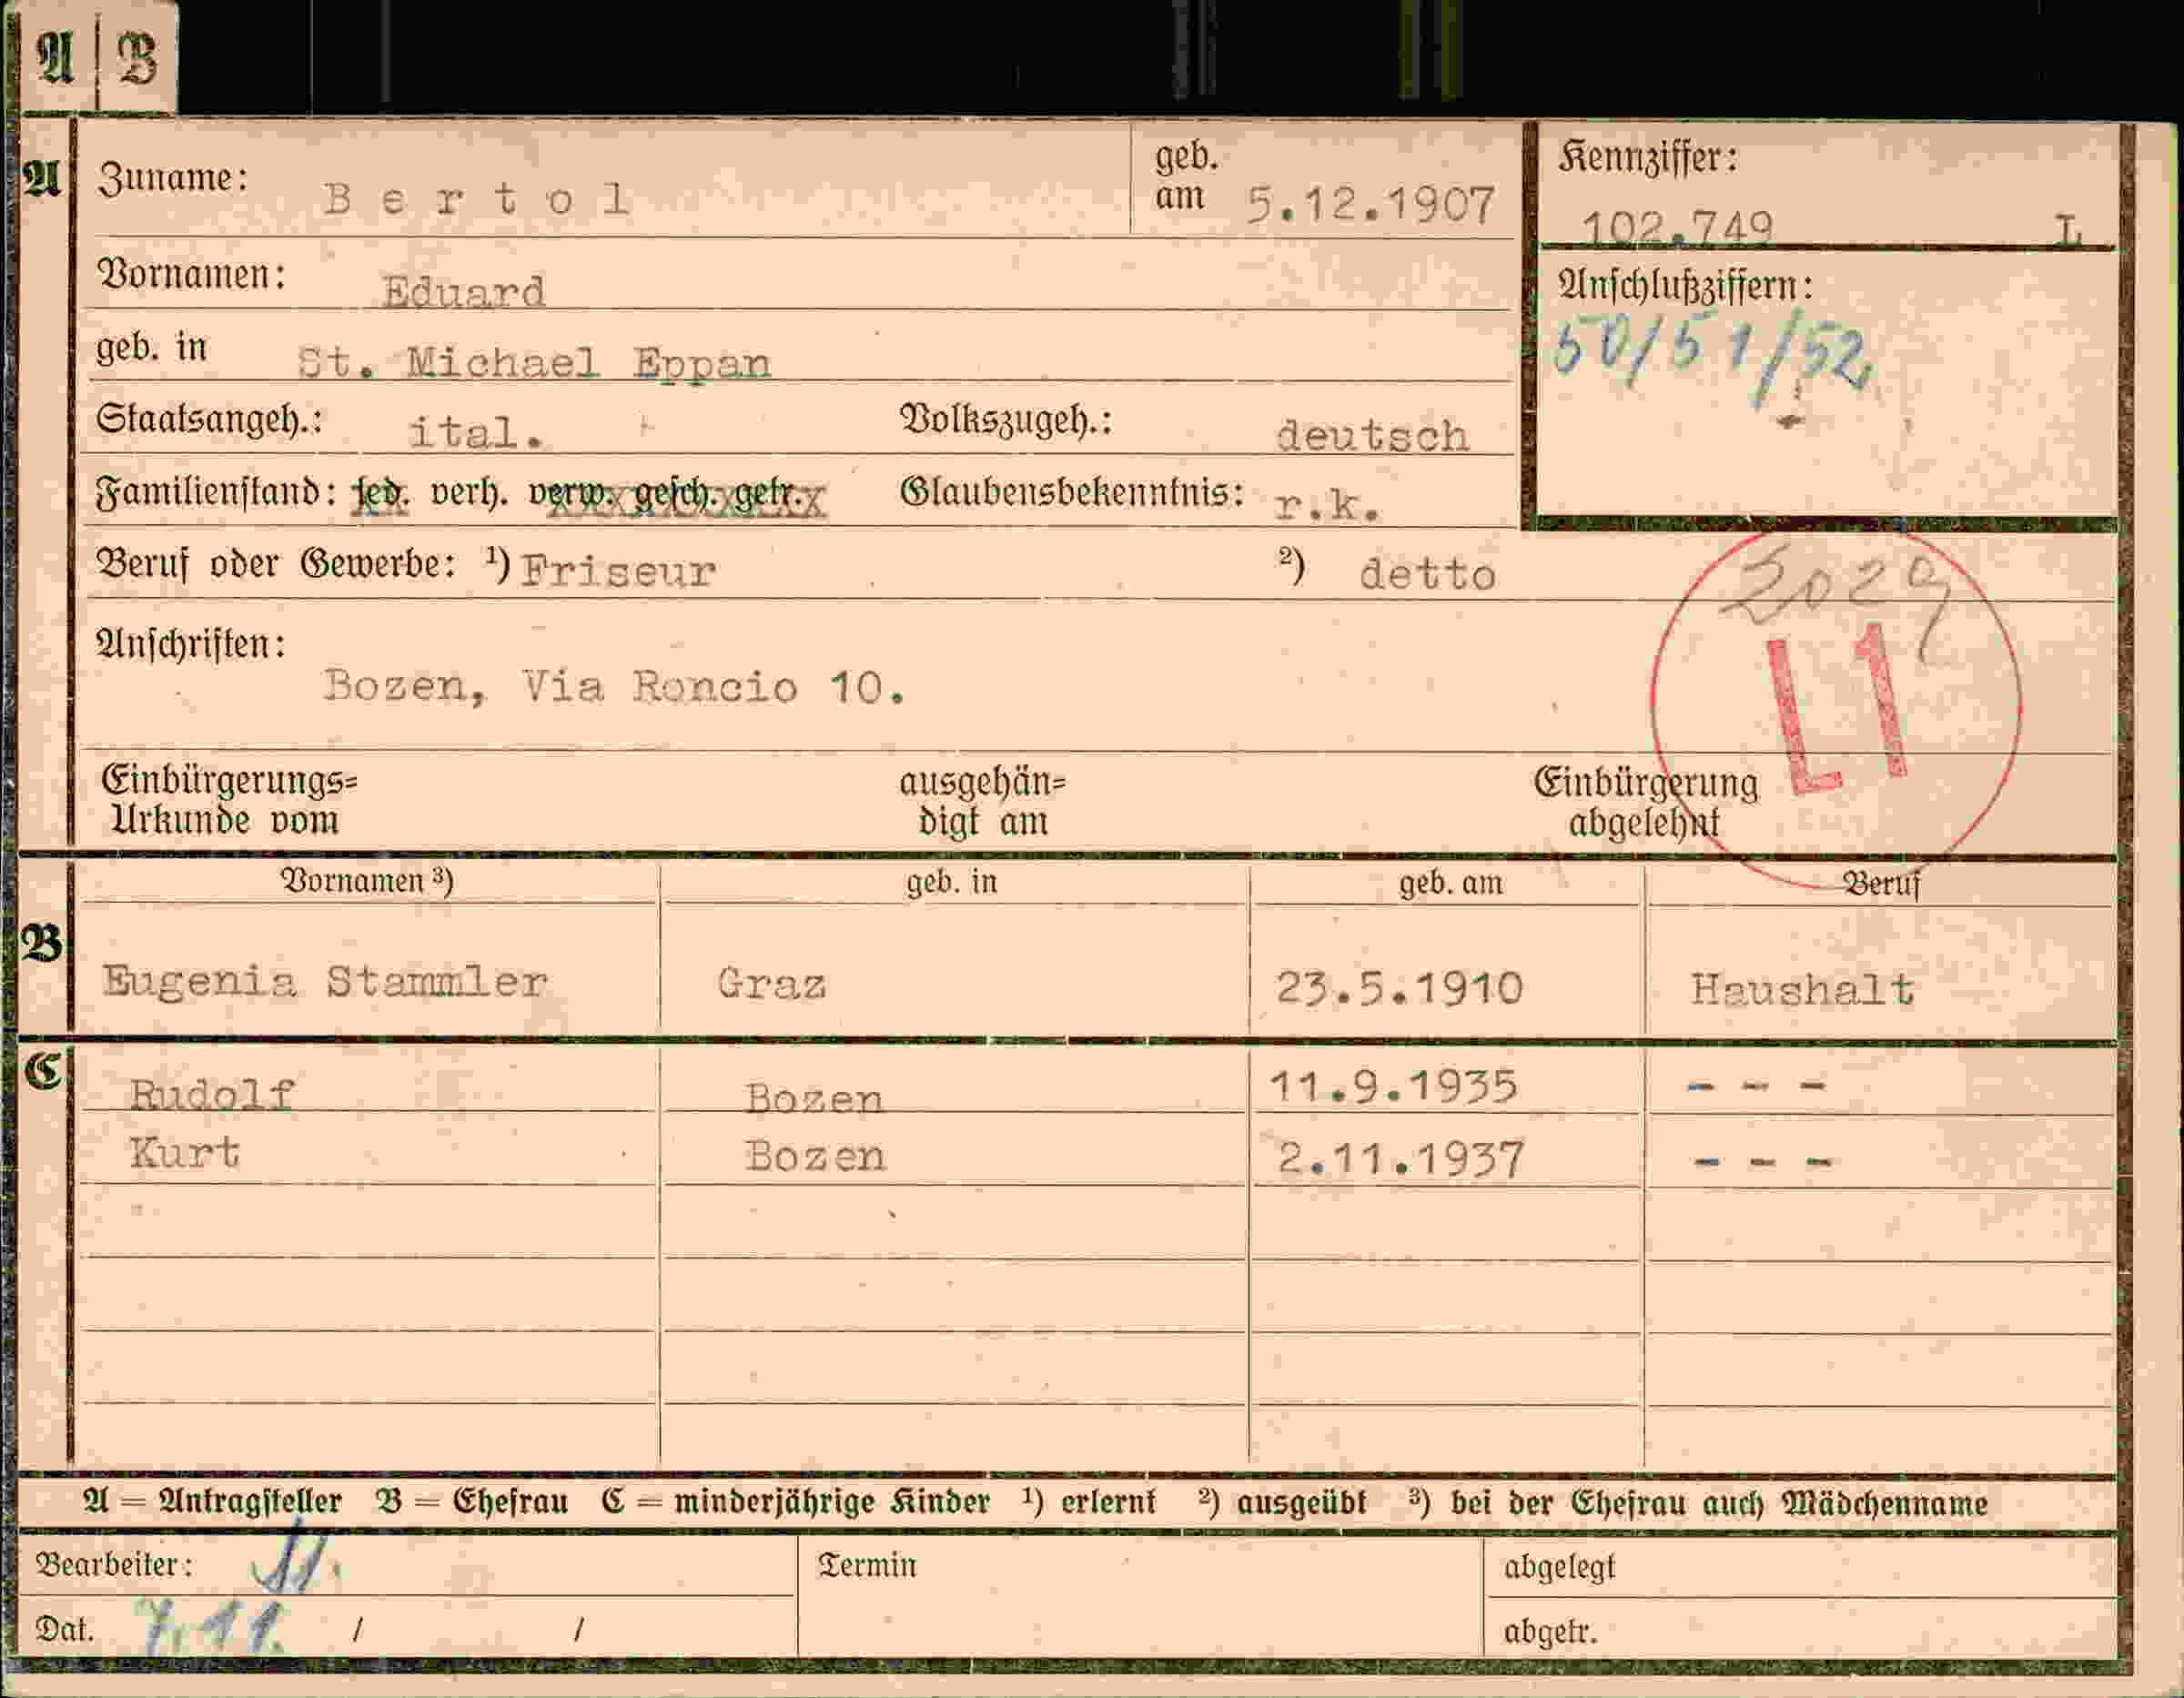 A | B
A Zuname: Bertol geb. am 5.12.1907
Kennziffer: 102.749 L
Vornamen: Eduard
Anschlußziffern: 50/51/52
geb. in St. Michael Eppan
Staatsangeh.: ital. Volkszugeh.: deutsch
Familienstand: led. verh. verw. gesch. getr. Glaubensbekenntnis: r.k.
Beruf oder Gewerbe: ¹) Friseur ²) detto
Anschriften:
Bozen, Via Roncio 10.
L1
Einbürgerungs= Urkunde vom ausgehän= digt am Einbürgerung abgelehnt
Vornamen ³) geb. in geb. am Beruf
B Eugenia Stammler Graz 23.5.1910 Haushalt
C Rudolf Bozen 11.9.1935 - - -
Kurt Bozen 2.11.1937 - - -
A = Antragsteller B = Ehefrau C = minderjährige Kinder ¹) erlernt ²) ausgeübt ³) bei der Ehefrau auch Mädchenname
Bearbeiter: Termin abgelegt
Dat. 7.11. / / abgetr.